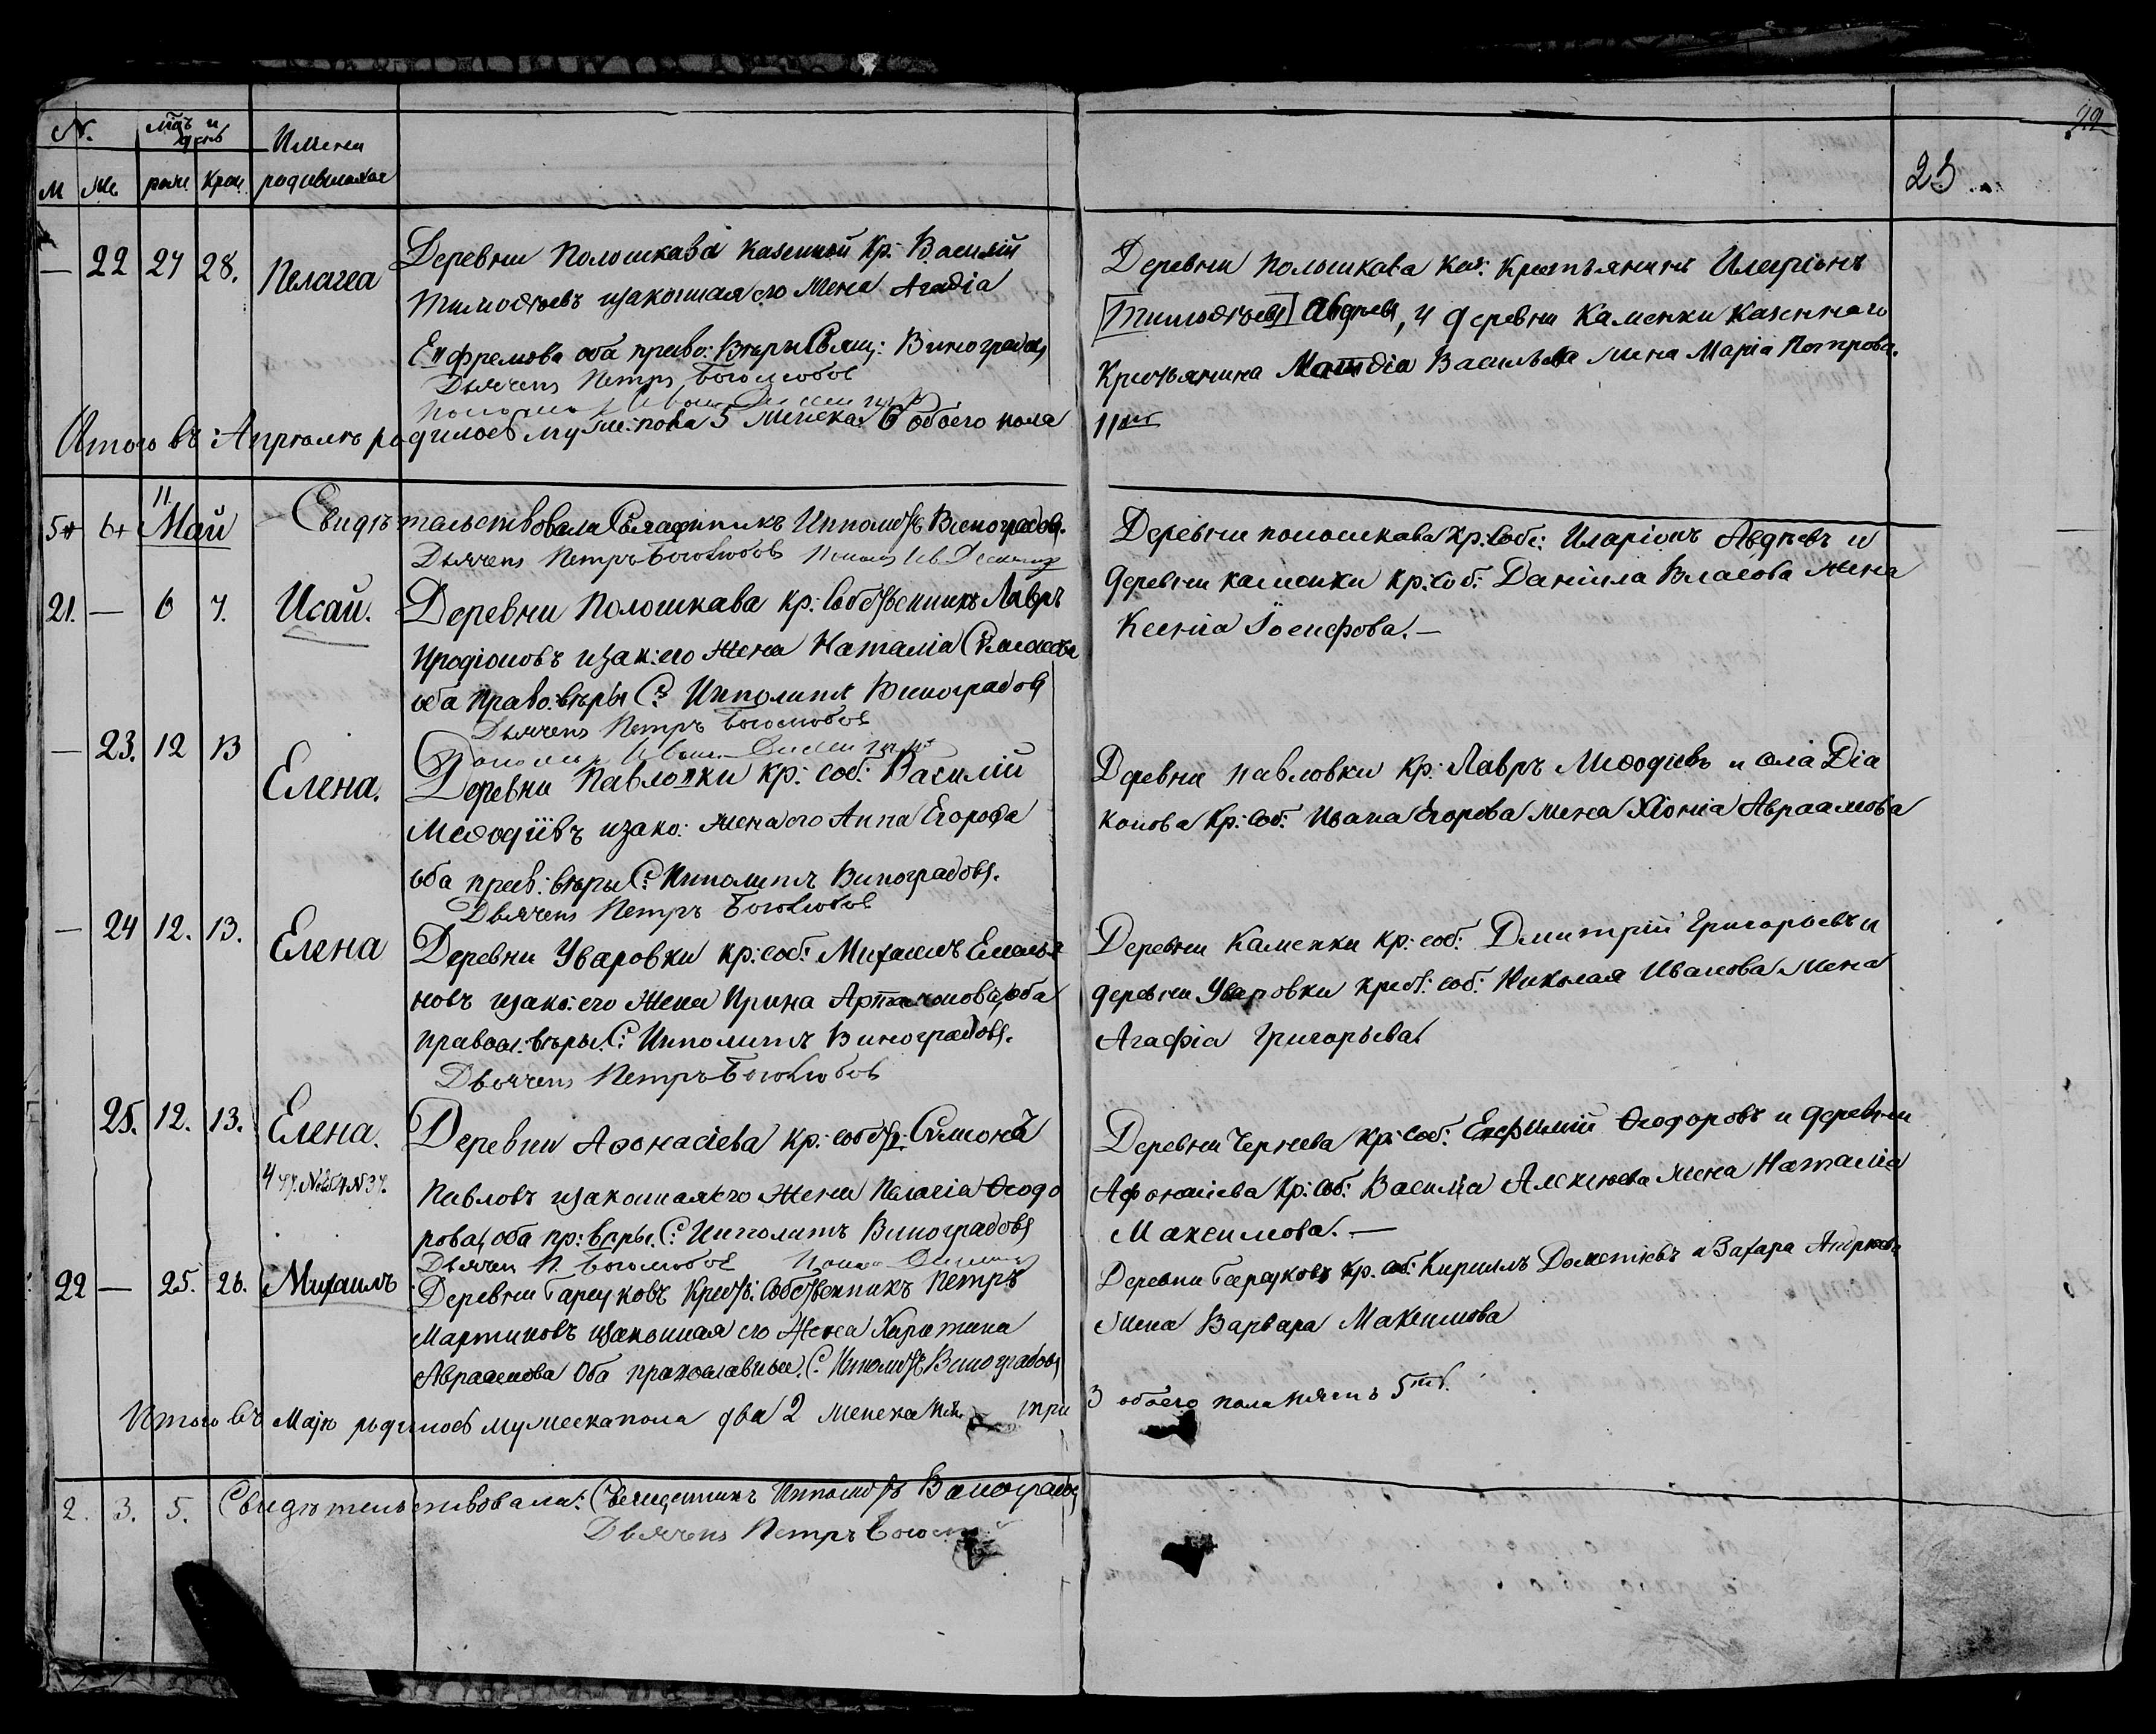 №.
мцъ и день
Имена
22
М
Же
рож
крещ
родившихся
23
— 22 27 28. Пелагеа
Деревни Полошкава казенной Кр: Василій
Тимоѳѣевъ изаконная его Жена Агаѳіа
Енфремова оба право: Вѣры Свящ: Виноградовъ
Дьячекъ Петръ Боголюбовъ
Итого въ Апрѣлѣ родилось муже: пола 5 Женска 6 обоего пола
Деревни Полошкава Каз: Крестьянинъ Иларіонъ
Тимоѳѣевъ Авдѣевъ, и деревни Каменки Казеннаго
Крестьянина Васильева жена Маріа Петрова.
11ть
5+ 6+ 11 Май
Свидѣтельствовали Священникъ Ипполитъ Виноградовъ.
Дьячекъ Петръ Боголюбовъ
21. — 6 7. Исаи.
Деревни Полошкава кр: Собственникъ Лавръ
Иродіоновъ изак: его жена Наталіа
оба Право: вѣры С: Ипполитъ Виноградовъ
Дьячекъ Петръ Боголюбовъ
Деревни полошкава кр: Собс: Иларіонъ Авдѣевъ и
деревни каменки кр: Соб: Даніила Власова жена
Ксеніа Іосифова. —
— 23. 12 13 Елена.
Деревни Павловки кр: соб: Василій
Меѳодіевъ изако: жена его Анна Егорова
оба прав: вѣры С: Ипполитъ Виноградовъ.
Дьячекъ Петръ Боголюбовъ
Деревни Павловки Кр: Лавръ Меѳодіевъ и села Діа
конова Кр: Соб: Ивана Егорова жена Хіоніа Авраамова
— 24 12. 13. Елена
Деревни Уваровки кр: соб: Михаилъ Емелья
новъ изако: его жена Ирина оба
правос. вѣры. С: Ипполитъ Виноградовъ.
Дьячекъ Петръ Боголюбовъ
Деревни Каменки кр: соб: Дмитрій Григорьевъ и
деревни Уваровки крест: соб: Николая Иванова жена
Агафіа Григорьева.
25. 12. 13. Елена.
Деревни Аѳонасіева кр: собст: Симонъ
Павловъ изаконная его жена Пелагіа Ѳеодо
рова, оба пр: вѣры. С: Ипполитъ Виноградовъ
Дьячек П. Боголюбовъ
Деревни Чернева кр: соб: Евфимій Ѳеодоровъ и деревни
Афонасіева Кр: Соб: Василіа Алексѣева жена Наталіа
Максимова. —
22 — 25. 26. Михаилъ
Деревни Крест: Собственникъ Петръ
Мартиновъ изаконная его Жена Харитина
Авраамова Оба православные. С. Ипполитъ Виноградовъ
Деревни кр. соб: Кириллъ и Захара Андрѣева
жена Варвара Максимова
Итого въ Маѣ родилось мужеска пола два 2 женска три
3 обоего пола пять 5ть.
2. 3. 5. Свидѣтельствовали: Священникъ Ипполитъ Виноградовъ
Дьячекъ Петръ